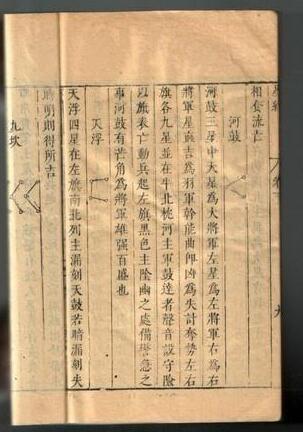 星經
相奪流亡
河鼓
河鼓三星中大星為大將軍左星為左將軍右為右
將軍星直吉為羽軍幹能曲即凶為失計奪勢左右
旗各九星並在牛北枕河主軍鼓達者聲音設守險
以旗表亡動兵起左旗黑色主陰幽之處備警急之
事河鼓有芒角為將軍雄强百盛也
天浮
天浮四星在左旗南北列主漏刻天鼓若暗漏刻失
時明則得所吉
九坎